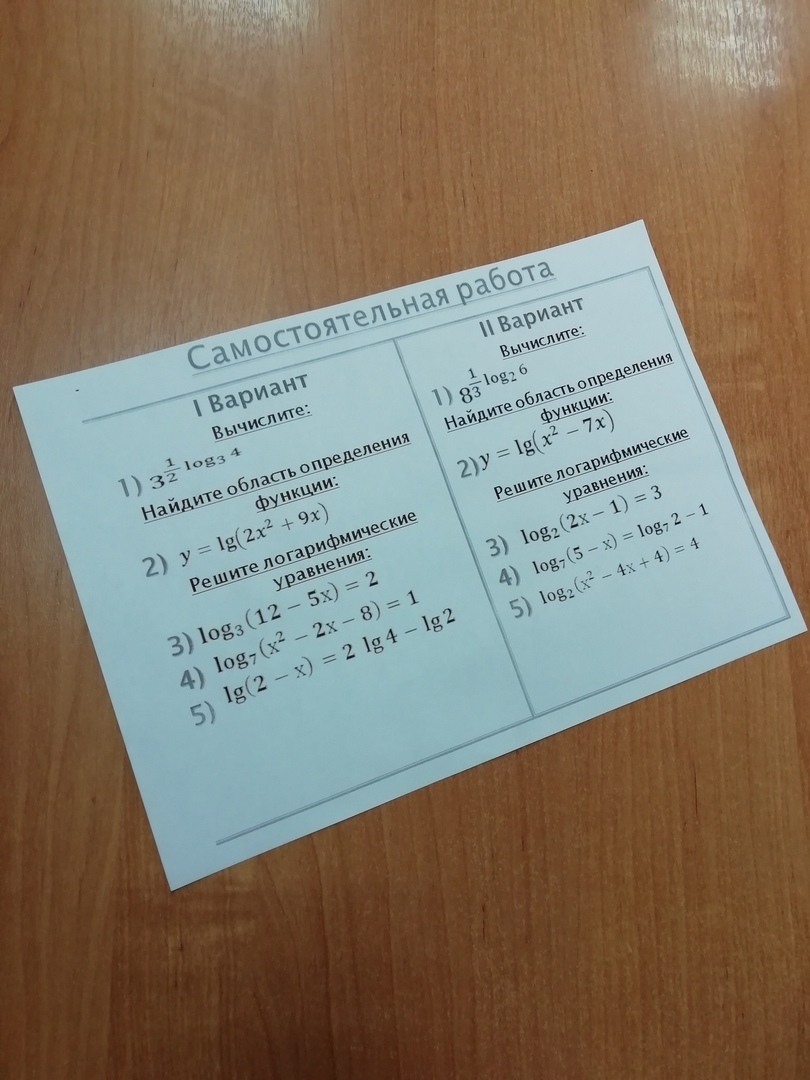 Самостоятельная работа
I Вариант
Вычислите:
1) 3^{\frac{1}{2} log₃ 4}
Найдите область определения
функции:
2) y = lg(2x² + 9x)
Решите логарифмические
уравнения:
3) log₃(12 − 5x) = 2
4) log₇(x² − 2x − 8) = 1
5) lg(2 − x) = 2 lg 4 − lg 2
II Вариант
Вычислите:
1) 8^{\frac{1}{3} log₂ 6}
Найдите область определения
функции:
2) y = lg(x² − 7x)
Решите логарифмические
уравнения:
3) log₂(2x − 1) = 3
4) log₇(5 − x) = log₇ 2 − 1
5) log₂(x² − 4x + 4) = 4